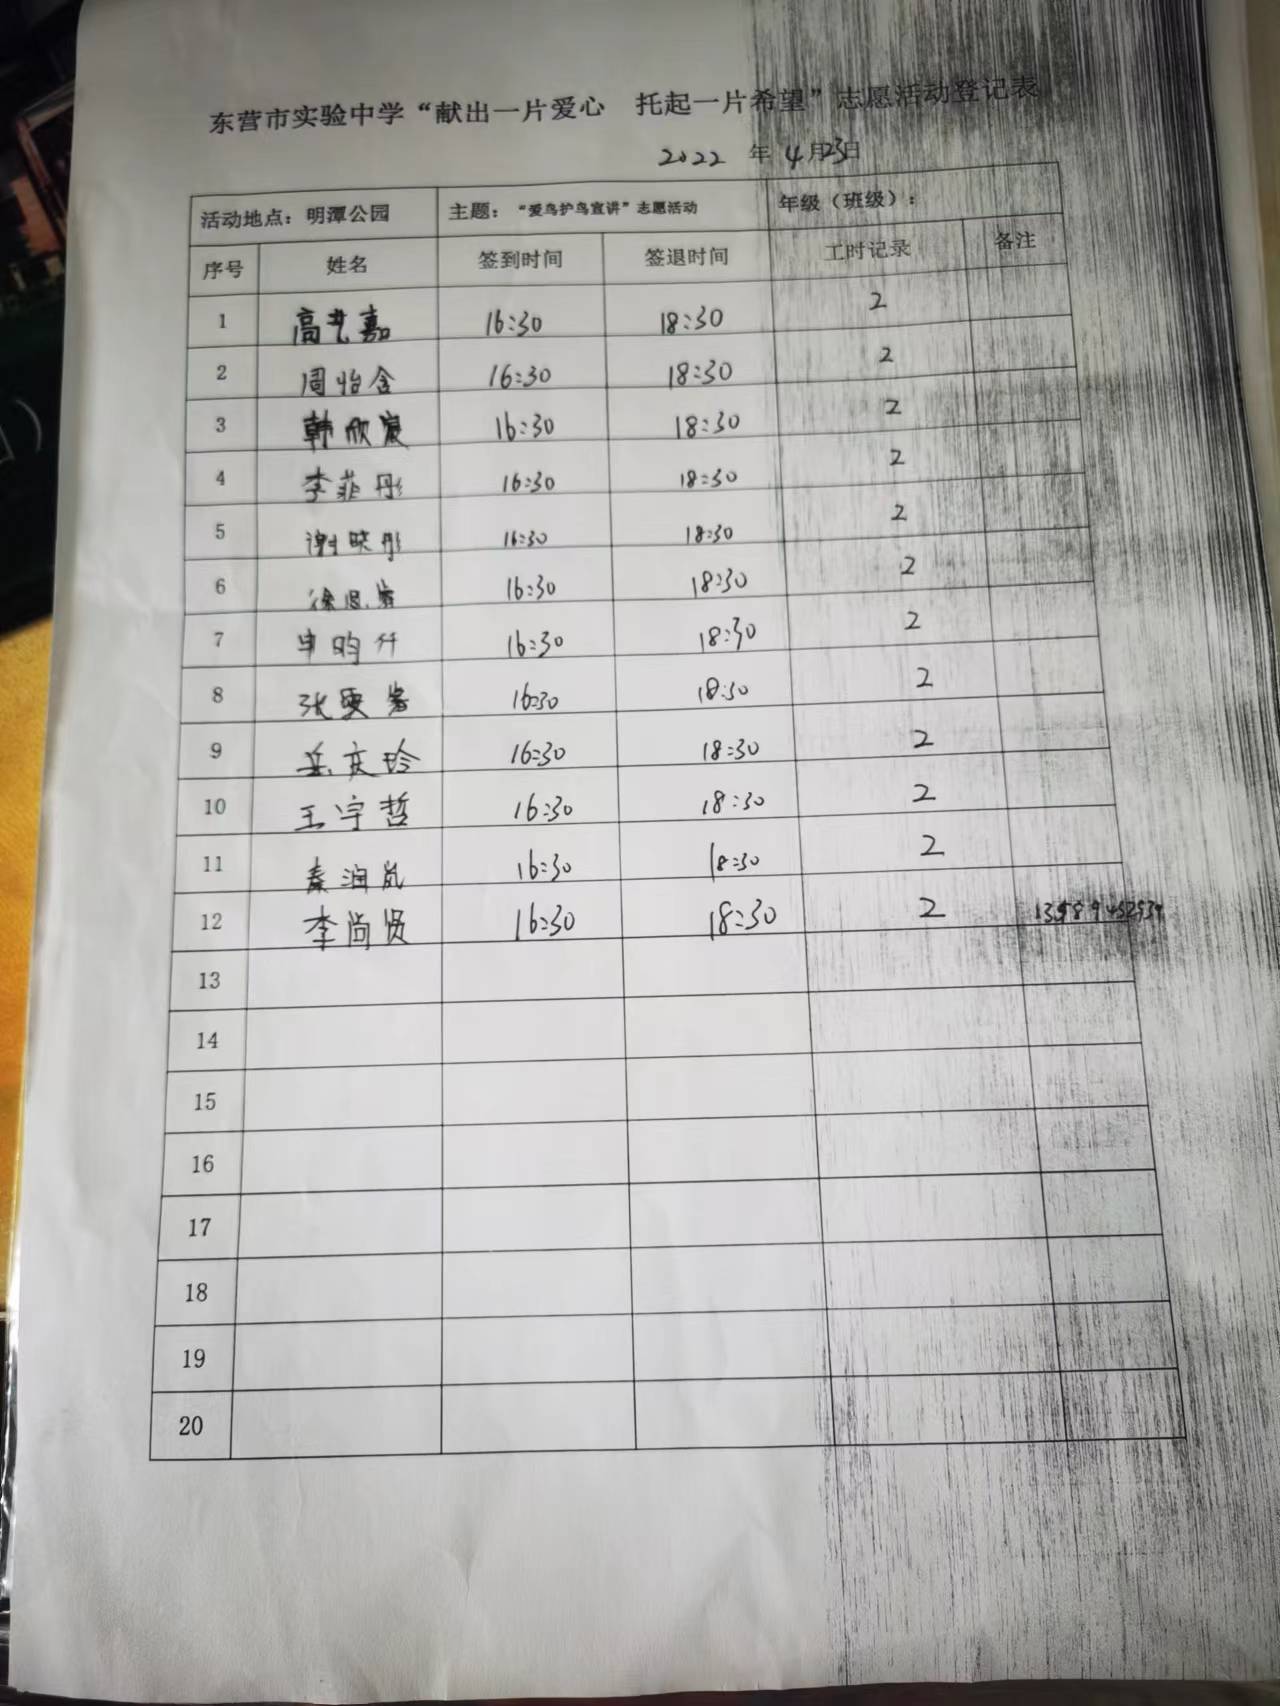 东营市实验中学“献出一片爱心 托起一片希望”志愿活动登记表
2022 年 4月23日
活动地点：明潭公园 主题：“爱鸟护鸟宣讲”志愿活动 年级（班级）：
序号 姓名 签到时间 签退时间 工时记录 备注
1 高艺嘉 16:30 18:30 2
2 周怡含 16:30 18:30 2
3 韩欣宸 16:30 18:30 2
4 李菲彤 16:30 18:30 2
5 谢映彤 16:30 18:30 2
6 徐思 16:30 18:30 2
7 昀 16:30 18:30 2
8 张 16:30 18:30 2
9 岳庆玲 16:30 18:30 2
10 王宇哲 16:30 18:30 2
11 秦润岚 16:30 18:30 2
12 李尚贤 16:30 18:30 2
13
14
15
16
17
18
19
20